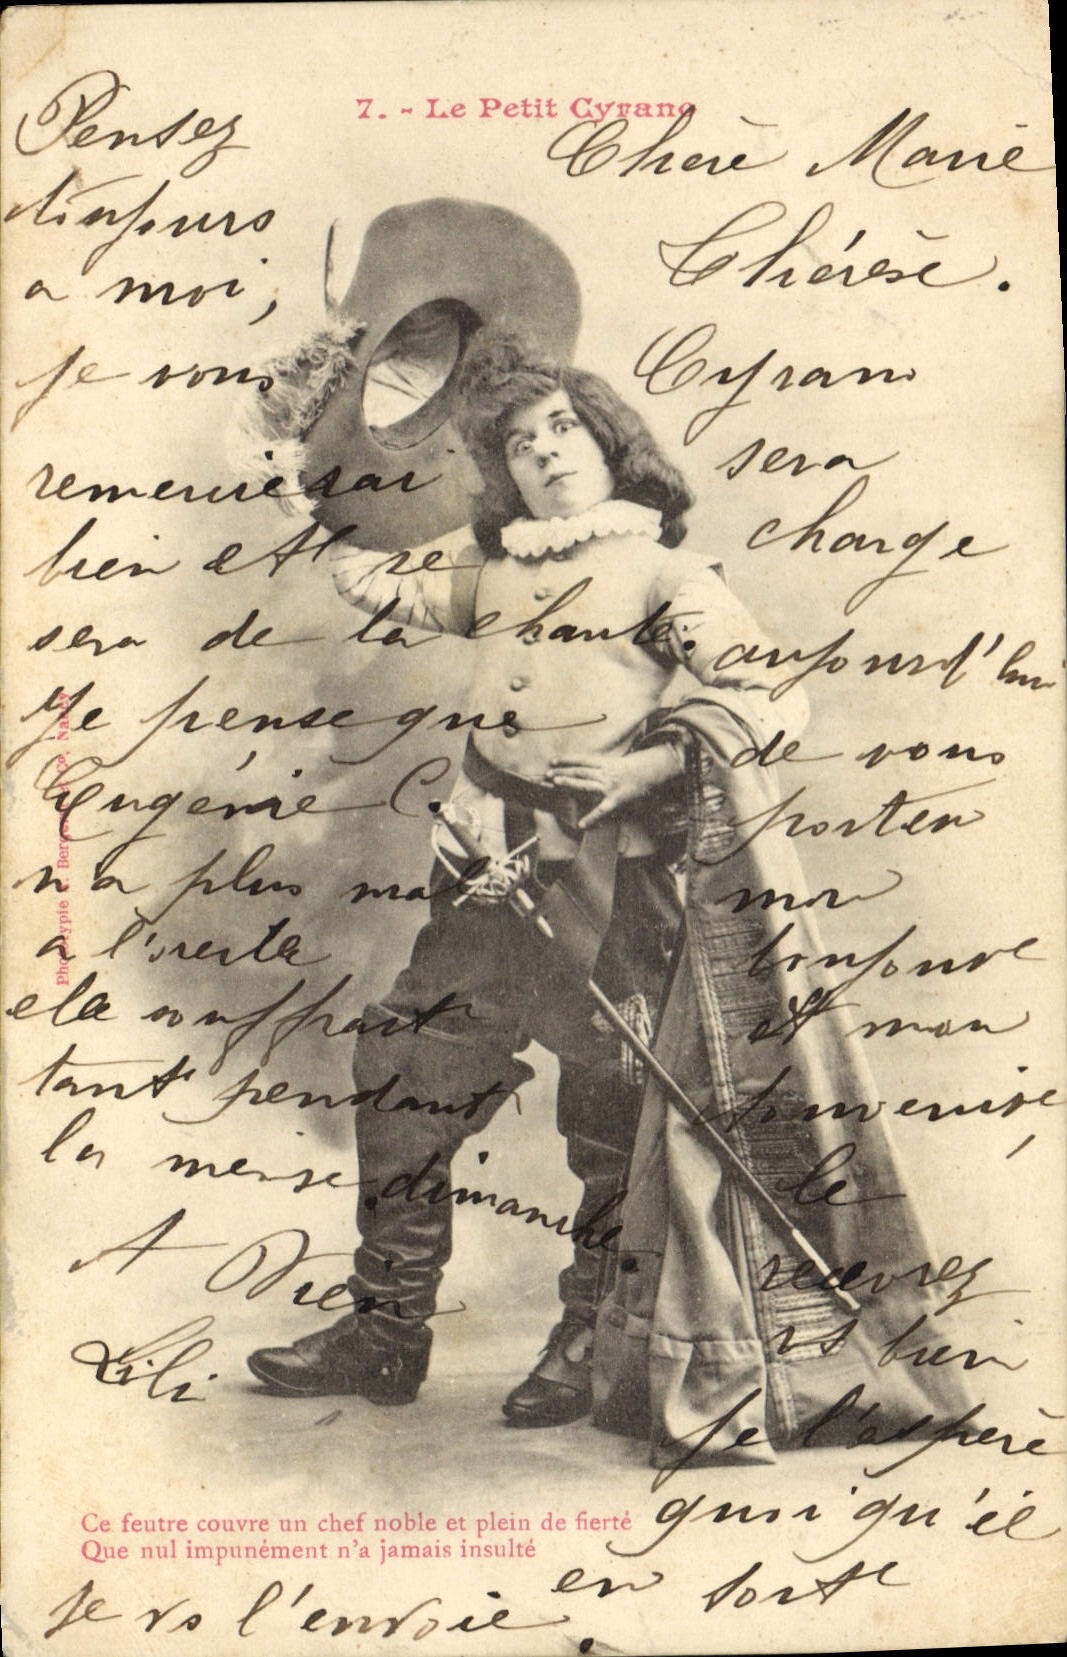 7. - Le Petit Cyrano
Chère Marie
Thérèse.
Cyrano
sera
charge
aujourd'hui
de vous
porter
mon
bonjour
et mon
souvenire,
le
recevrez
vs bien
je l'espère
quoiqu'il
en sort
Pensez
toujours
a moi,
je vous
remercierai
bien et se
sera de la chante.
Je pense que
Eugénie C.
n'a plus mal
a l'
ela souffrait
tant pendant
la messe dimanche.
A Dieu
Lili
je vs l'envoie.
Ce feutre couvre un chef noble et plein de fierté
Que nul impunément n'a jamais insulté
Phototypie Berg Co, Nancy